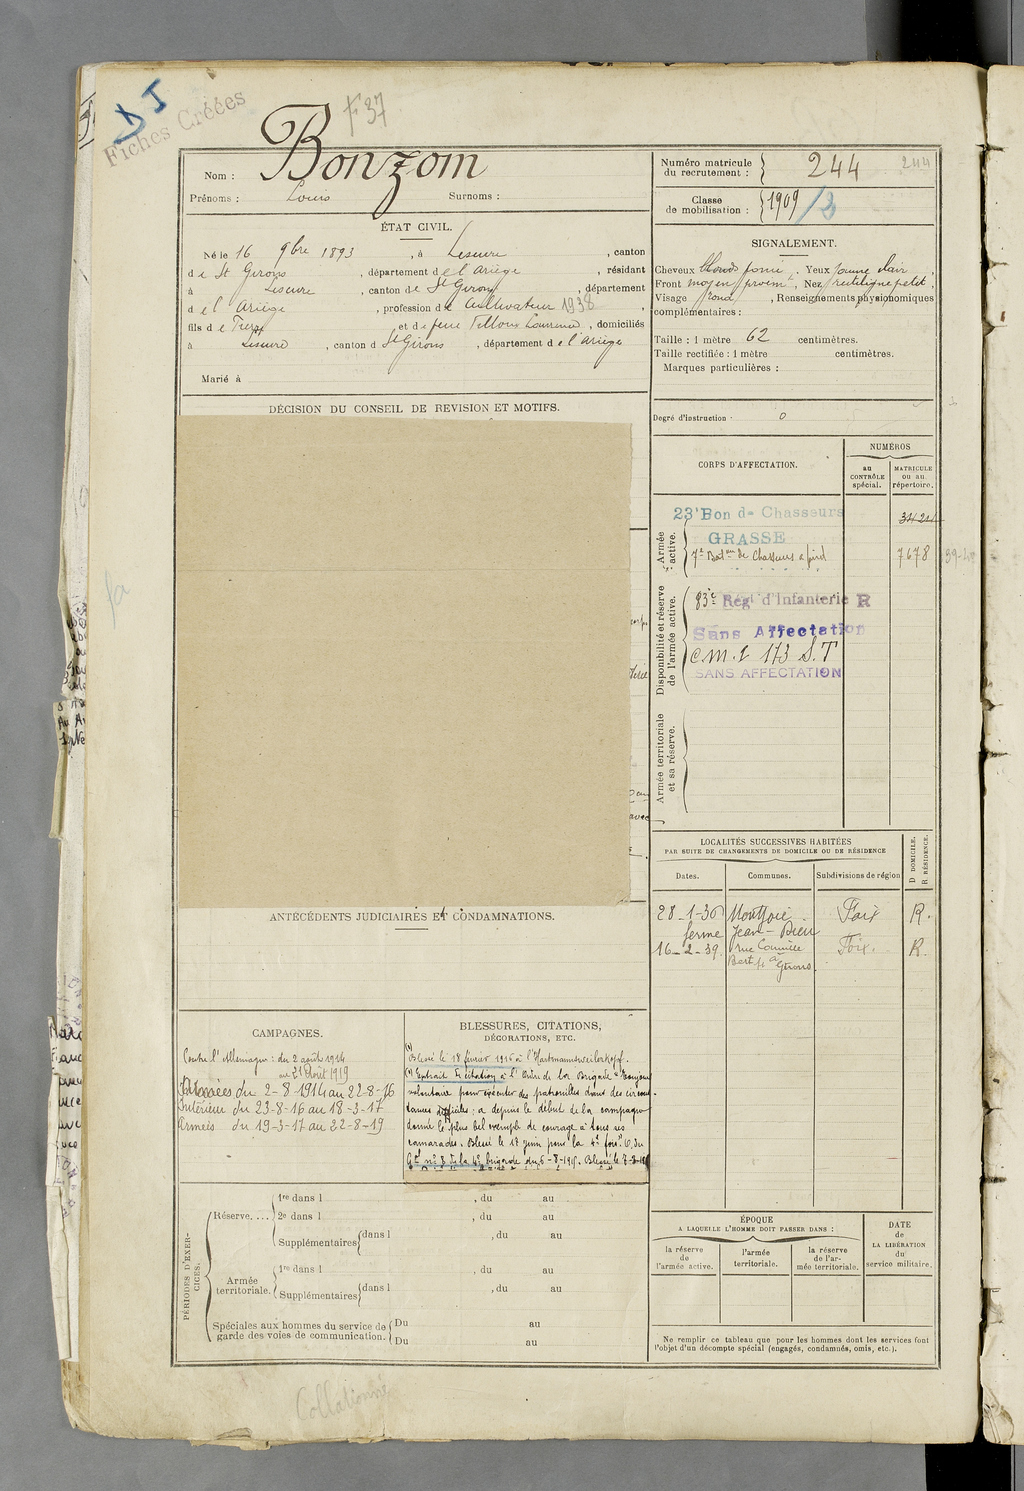 DJ
Fiches Créées
F37
Nom : Bonzom
Prénoms : Louis Surnoms :
ÉTAT CIVIL.
Né le 16 9bre 1893, à Lescure, canton
de St Girons, département de l'Ariège, résidant
à Lescure, canton de St Girons, département
de l'Ariège, profession de Cultivateur 1938,
fils de et de feue Laurence, domiciliés
à Lescure, canton d St Girons, département de l'Ariège
Marié à
DÉCISION DU CONSEIL DE REVISION ET MOTIFS.
ANTÉCÉDENTS JUDICIAIRES ET CONDAMNATIONS.
CAMPAGNES.
Contre l'Allemagne : du 2 août 1914
au 21 août 1919
Armées du 2-8-1914 au 22-8-16
Intérieur du 23-8-16 au 18-3-17
Armées du 19-3-17 au 22-8-19
BLESSURES, CITATIONS,
DÉCORATIONS, ETC.
Blessé le 18 février 1915 à l'Hartmannsweilerkopf.
Extrait de citation à l'Ordre de la Brigade "Toujours
volontaire pour exécuter des patrouilles dans des circons-
tances difficiles ; a depuis le début de la campagne
donné le plus bel exemple de courage à tous ses
camarades. Blessé le 17 juin pour la 4e fois". O. du
Gal no 8 de la 4e brigade du 6-8-1915. Blessé le 7-8-
PÉRIODES D'EXER-
CICES.
Réserve.... 1re dans l , du au
2e dans l , du au
Supplémentaires dans l , du au
Armée
territoriale. 1re dans l , du au
Supplémentaires dans l , du au
Spéciales aux hommes du service de
garde des voies de communication. Du au
Du au
Collationné
Numéro matricule
du recrutement : 244 244
Classe
de mobilisation : 1909/3
SIGNALEMENT.
Cheveux blonds foncé, Yeux jaune clair,
Front moyen proém, Nez rectiligne petit,
Visage rond, Renseignements physionomiques
complémentaires :
Taille : 1 mètre 62 centimètres.
Taille rectifiée : 1 mètre centimètres.
Marques particulières :
Degré d'instruction : 0
CORPS D'AFFECTATION.
NUMÉROS
au
CONTRÔLE
spécial.
MATRICULE
ou au
répertoire.
Armée
active.
23e Bon de Chasseurs
GRASSE
7e Baton de Chasseurs à pied 7678
Disponibilité et réserve
de l'armée active.
83e Reg d'Infanterie R
Sans Affectation
C.M.I 173 S.T
SANS AFFECTATION
Armée territoriale
et sa réserve.
LOCALITÉS SUCCESSIVES HABITÉES
PAR SUITE DE CHANGEMENTS DE DOMICILE OU DE RÉSIDENCE
D DOMICILE.
R RÉSIDENCE.
Dates. Communes. Subdivisions de région
28-1-36 Montjoie. Foix R.
ferme Jean-Dieu
16-2-39 rue Camille Foix. R.
Bert St Girons.
ÉPOQUE
A LAQUELLE L'HOMME DOIT PASSER DANS :
la réserve
de
l'armée active.
l'armée
territoriale.
la réserve
de l'ar-
mée territoriale.
DATE
de
LA LIBÉRATION
du
service militaire.
Ne remplir ce tableau que pour les hommes dont les services font
l'objet d'un décompte spécial (engagés, condamnés, omis, etc.).